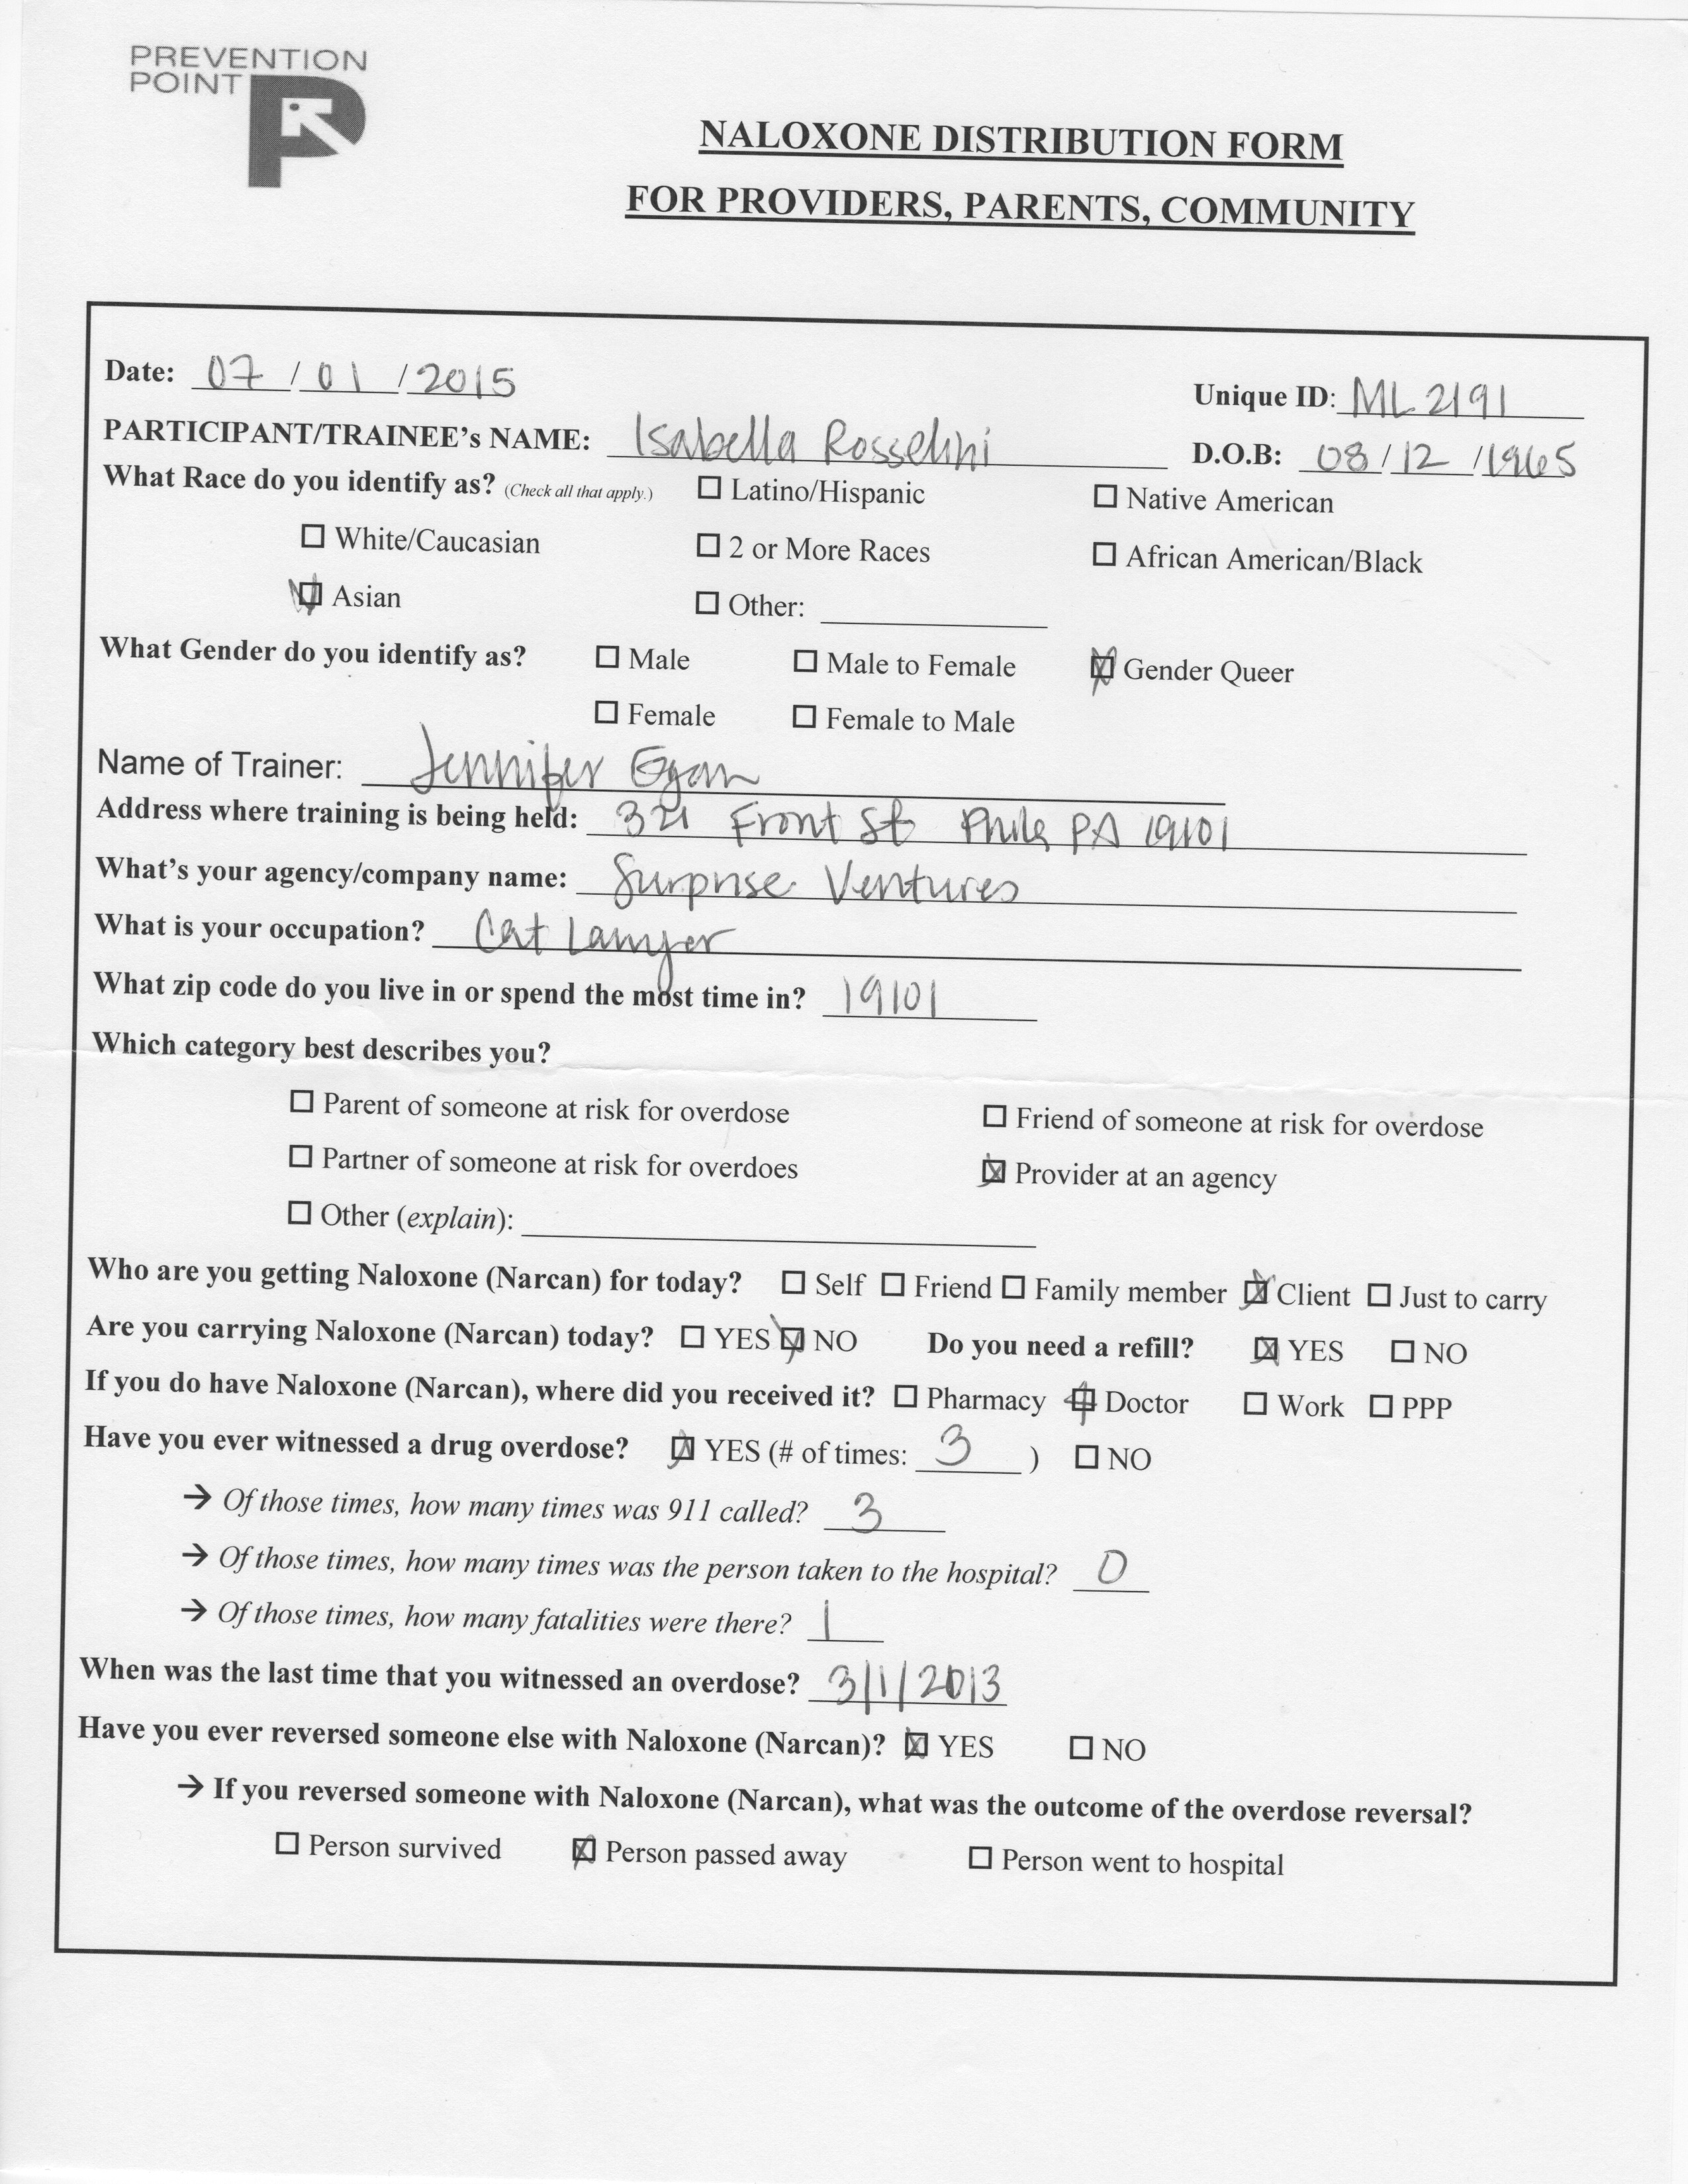 PREVENTION
POINT
P
NALOXONE DISTRIBUTION FORM
FOR PROVIDERS, PARENTS, COMMUNITY
Date: 07 / 01 / 2015
Unique ID: ML2191
PARTICIPANT/TRAINEE's NAME: Isabella Rossellini
D.O.B: 08 / 12 / 1965
What Race do you identify as? (Check all that apply.) ☐ Latino/Hispanic ☐ Native American
☐ White/Caucasian ☐ 2 or More Races ☐ African American/Black
☒ Asian ☐ Other:
What Gender do you identify as? ☐ Male ☐ Male to Female ☒ Gender Queer
☐ Female ☐ Female to Male
Name of Trainer: Jennifer Egan
Address where training is being held: 321 Front St Phila PA 19101
What's your agency/company name: Surprise Ventures
What is your occupation? Cat Lawyer
What zip code do you live in or spend the most time in? 19101
Which category best describes you?
☐ Parent of someone at risk for overdose ☐ Friend of someone at risk for overdose
☐ Partner of someone at risk for overdoes ☒ Provider at an agency
☐ Other (explain):
Who are you getting Naloxone (Narcan) for today? ☐ Self ☐ Friend ☐ Family member ☒ Client ☐ Just to carry
Are you carrying Naloxone (Narcan) today? ☐ YES ☒ NO Do you need a refill? ☒ YES ☐ NO
If you do have Naloxone (Narcan), where did you received it? ☐ Pharmacy ☒ Doctor ☐ Work ☐ PPP
Have you ever witnessed a drug overdose? ☒ YES (# of times: 3 ) ☐ NO
→ Of those times, how many times was 911 called? 3
→ Of those times, how many times was the person taken to the hospital? 0
→ Of those times, how many fatalities were there? 1
When was the last time that you witnessed an overdose? 3/1/2013
Have you ever reversed someone else with Naloxone (Narcan)? ☒ YES ☐ NO
→ If you reversed someone with Naloxone (Narcan), what was the outcome of the overdose reversal?
☐ Person survived ☒ Person passed away ☐ Person went to hospital